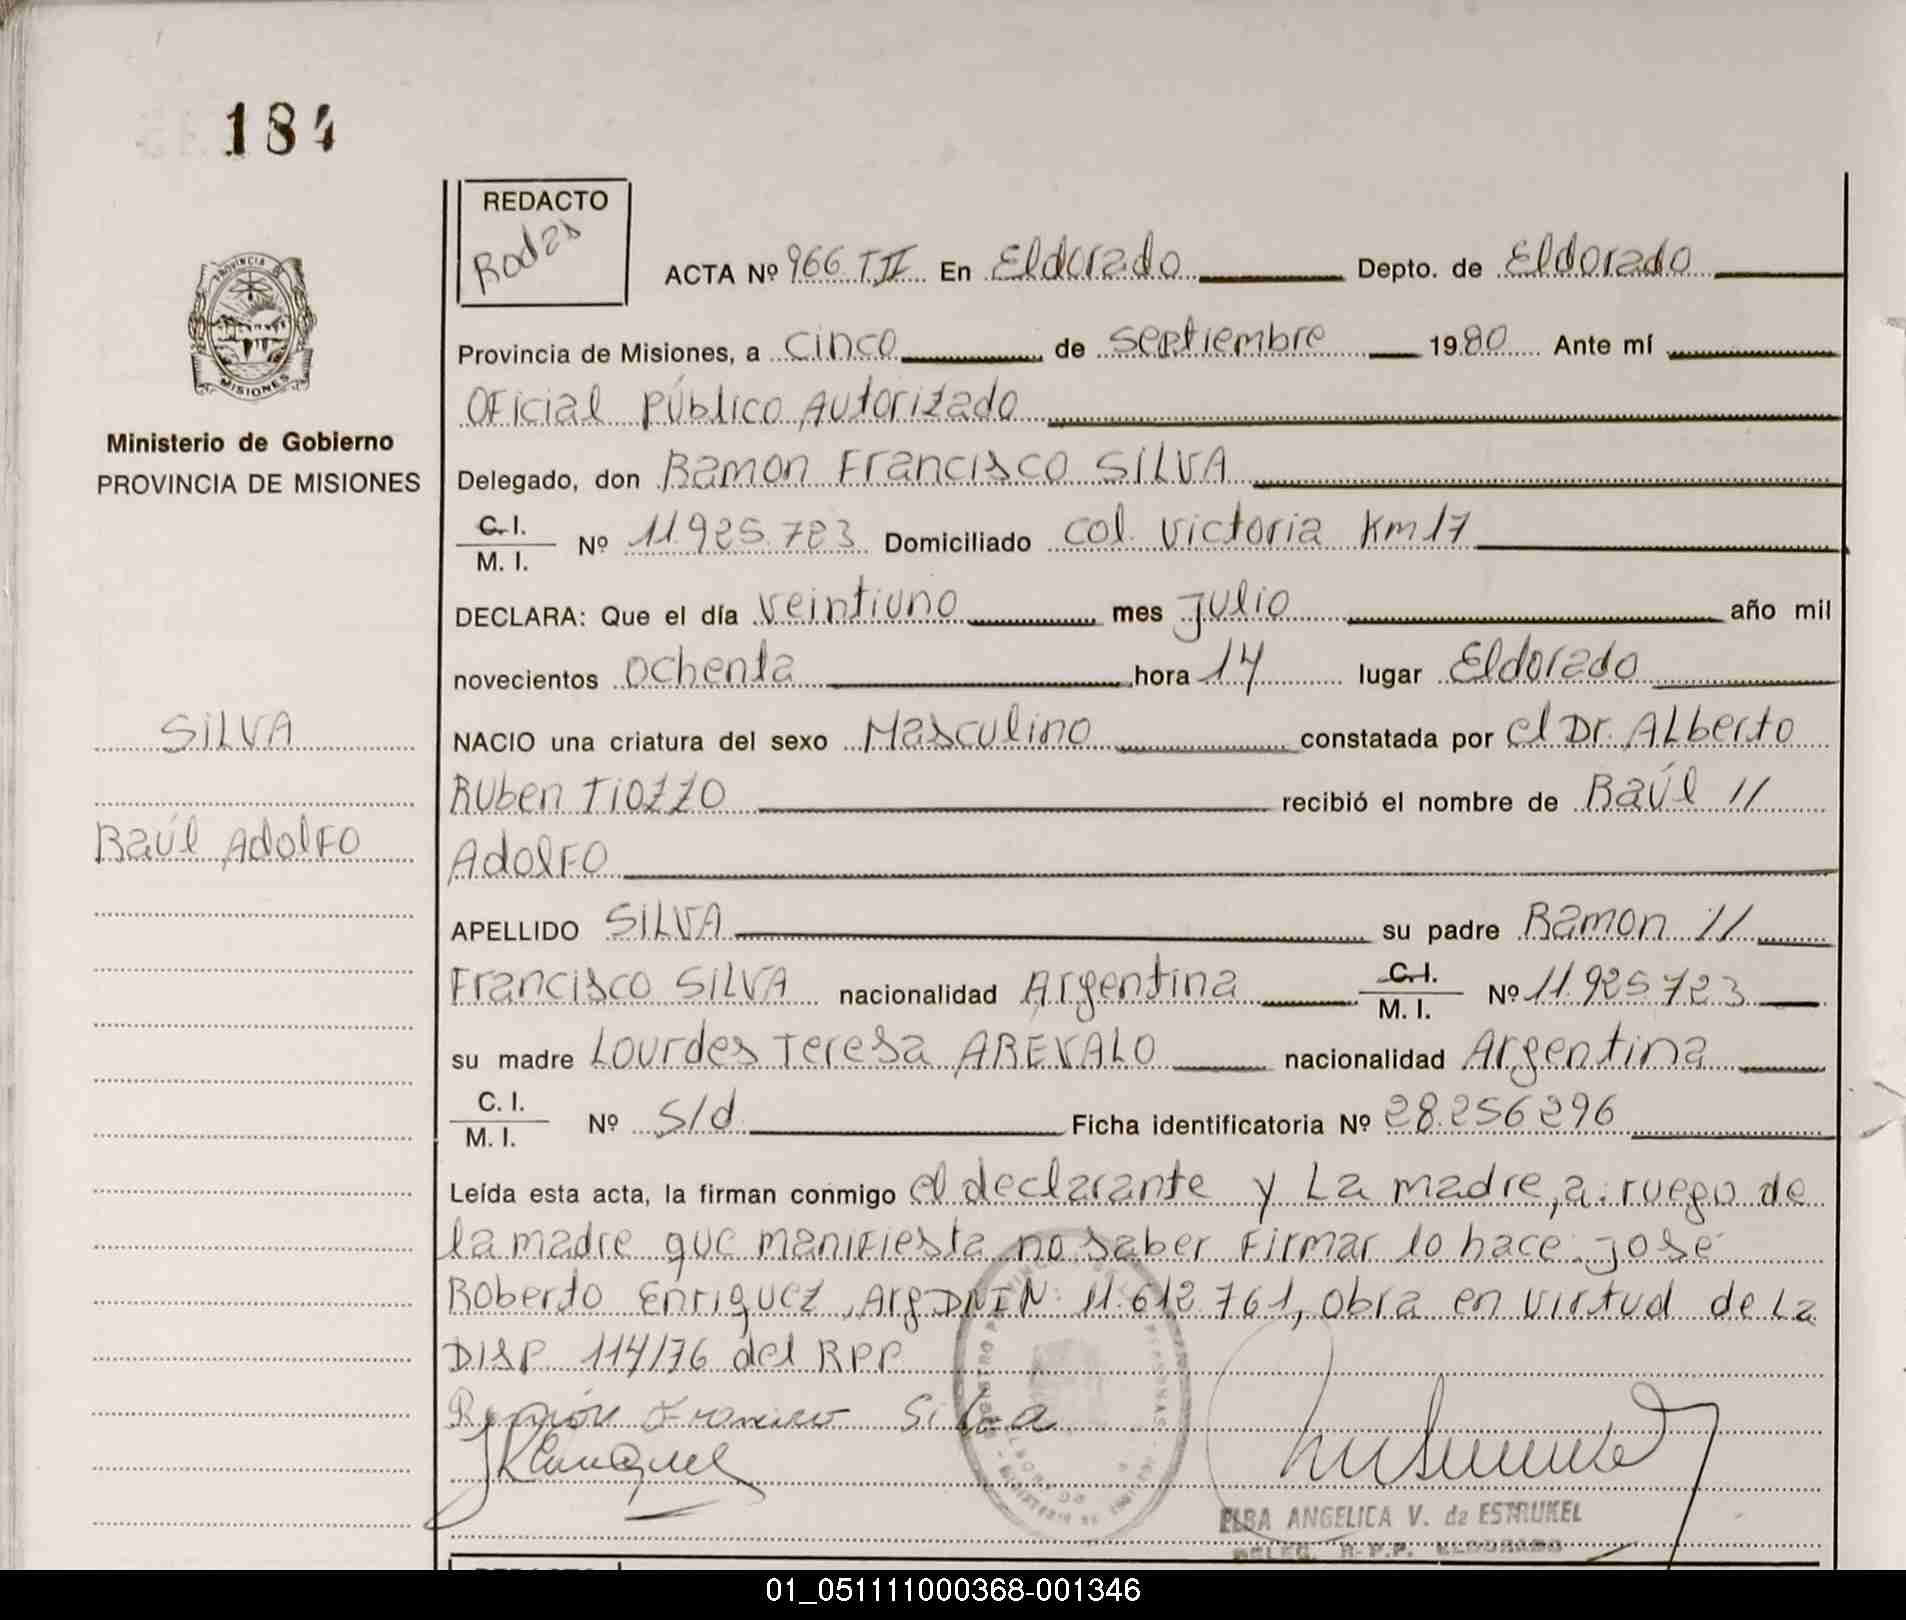 184
REDACTO
Rodas
ACTA Nº 966 TII En Eldorado Depto. de Eldorado
PROVINCIA DE
MISIONES
Ministerio de Gobierno
PROVINCIA DE MISIONES
Provincia de Misiones, a cinco de septiembre 1980 Ante mí
Oficial Público Autorizado
Delegado, don Ramon Francisco SILVA
C. I.
M. I. Nº 11.925.723 Domiciliado Col. Victoria Km 17
DECLARA: Que el día veintiuno mes Julio año mil
novecientos ochenta hora 14 lugar Eldorado
SILVA
NACIO una criatura del sexo Masculino constatada por el Dr. Alberto
Ruben Tiozzo recibió el nombre de Raúl //
Raúl Adolfo
Adolfo
APELLIDO SILVA su padre Ramon //
Francisco SILVA nacionalidad Argentina C. I. M. I. Nº 11.925.723
su madre Lourdes Teresa AREVALO nacionalidad Argentina
C. I.
M. I. Nº s/d Ficha identificatoria Nº 28.256.296
Leída esta acta, la firman conmigo el declarante y La madre, a ruego de
la madre que manifiesta no saber firmar lo hace José
Roberto Enriquez, Arg DNI N 11.612.761, obra en virtud de La
DISP 114/76 del RPP
Ramón Francisco Silva
ELBA ANGELICA V. de ESTRUKEL
DELEG. R.P.P. ELDORADO
REDACTO
01_051111000368-001346